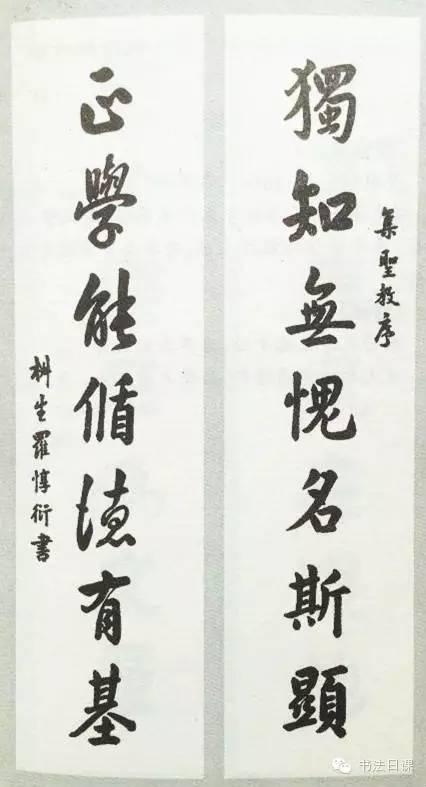 獨知無愧名斯顯
集聖教序
正學能循德有基
椒生羅惇衍書
书法日课